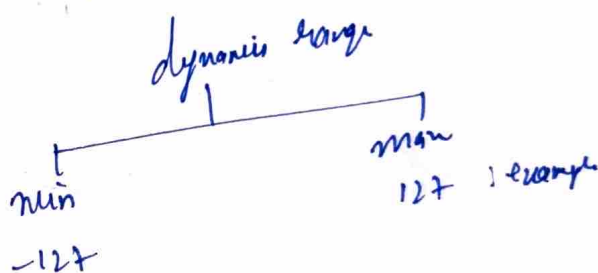 dynamic range
min
max
127 : example
-127